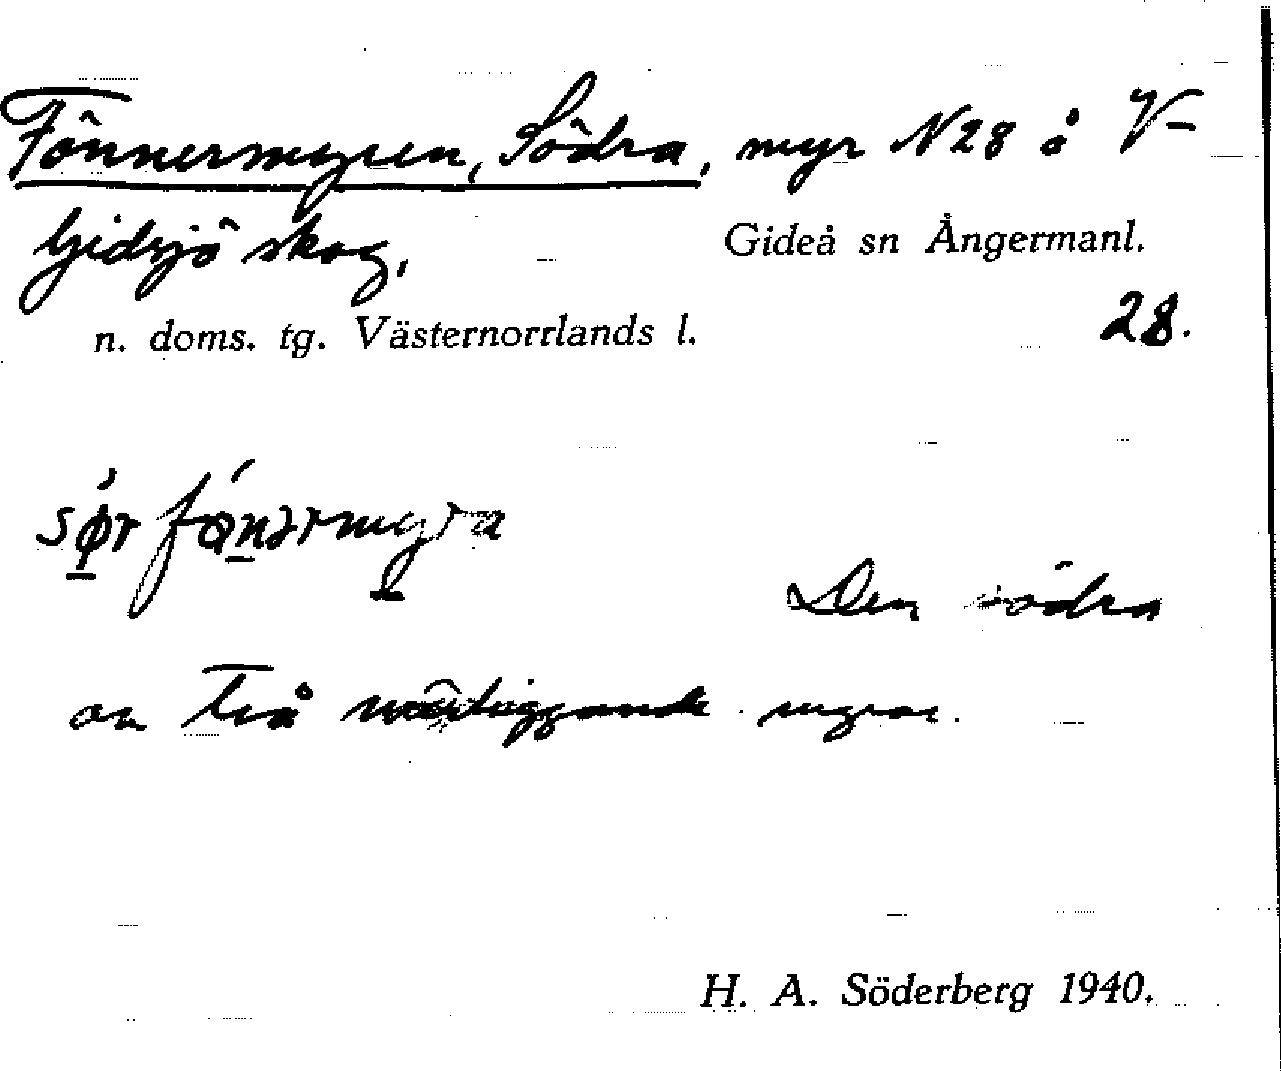 Fönnermyren, Södra, myr N 28 å V-
Gidsjö skog,
Gideå sn Ångermanl.
n. doms. tg. Västernorrlands l.
28.
sør fønərmyra
Den södra
av två närliggande myrar.
H. A. Söderberg 1940.